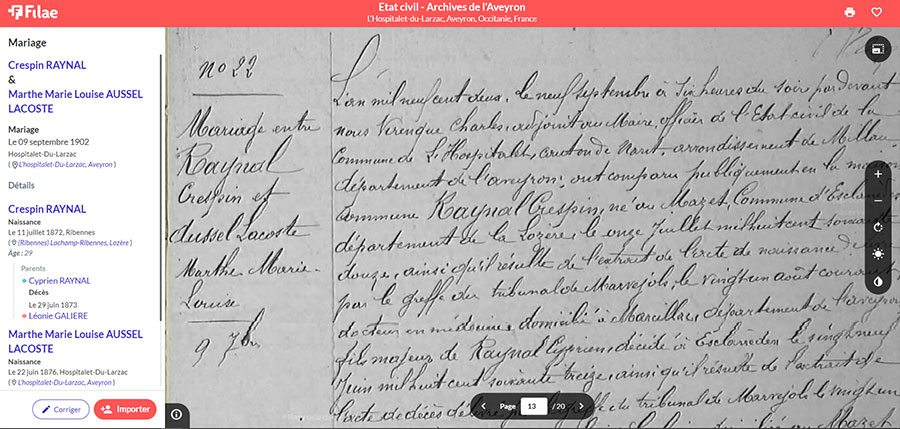 Filae
Etat civil - Archives de l'Aveyron
L'Hospitalet-du-Larzac, Aveyron, Occitanie, France
Mariage
Crespin RAYNAL
&
Marthe Marie Louise AUSSEL
LACOSTE
Mariage
Le 09 septembre 1902
Hospitalet-Du-Larzac
( L'Hospitalet-Du-Larzac, Aveyron )
Détails
Crespin RAYNAL
Naissance
Le 11 juillet 1872, Ribennes
( (Ribennes) Lachamp-Ribennes, Lozère )
Âge : 29
Parents
Cyprien RAYNAL
Décès
Le 29 juin 1873
Léonie GALIERE
Marthe Marie Louise AUSSEL
LACOSTE
Naissance
Le 22 juin 1876, Hospitalet-Du-Larzac
( L'Hospitalet-Du-Larzac, Aveyron )
Corriger
Importer
no 22
Mariage entre
Raynal
Crespin et
Aussel Lacoste
Marthe Marie-
Louise
9 7bre
L'an mil neuf cent deux, le neuf septembre à six heures du soir par devant
nous Verenque Charles, adjoint au Maire, officier de l'Etat civil de la
Commune de L'Hospitalet, canton de Nant, arrondissement de Millau
département de l'aveyron, ont comparu publiquement en la maison
Commune Raynal Crespin, né au Mazet Commune d'Esclanèdes
département de la Lozère, le onze Juillet mil huit cent soixante
douze, ainsi qu'il résulte de l'extrait de l'acte de naissance
par le greffe du tribunal de Marvejols le vingt un août courant
docteur en médecine, domicilié à Marcillac, département de l'aveyron
fils majeur de Raynal Cyprien, décédé à Esclanèdes le vingt neuf
Juin mil huit cent soixante treize, ainsi qu'il résulte de l'extrait de
l'acte de décès du tribunal de Marvejols le vingt un
au Mazet
Page 13 / 20